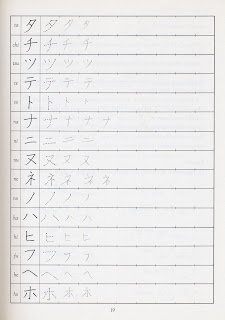 ta タ タ タ タ
chi チ チ チ チ
tsu ツ ツ ツ ツ
te テ テ テ テ
to ト ト ト ト
na ナ ナ ナ ナ ナ
ni ニ ニ ニ ニ
nu ヌ ヌ ヌ ヌ
ne ネ ネ ネ ネ ネ
no ノ ノ ノ ノ
ha ハ ハ ハ ハ
hi ヒ ヒ ヒ ヒ
fu フ フ フ フ
he ヘ ヘ ヘ ヘ
ho ホ ホ ホ ホ
19